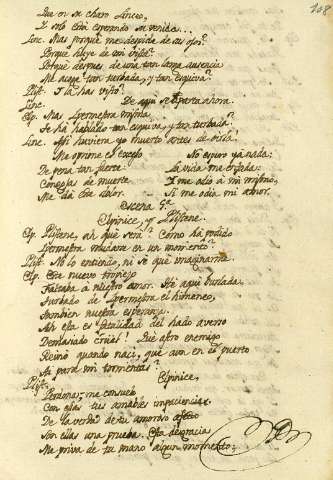 108
Que en su charo Linceo,
Y solo está esperando su venida...
Linc. Mas porqué me despida de sus ojos?
Porqué huye de mi vista?
Porqué despues de una tan larga ausencia
Me acoge tan turbada, y tan esquiva?
Plist. I la has visto?
Linc. De aquí se aparta ahora.
Elp. Mas Ipermestra misma
Se há hablado tan esquiva, y tan turbada?
Linc. Assi huviera yo muerto antes de oirla!
Me oprime el excesso No espero yá nada;
De pena tan fuerte: La vida me enfada;
Congojas de muerte I me odio á mi mismo,
Me dá ese dolor. Si me odia mi amor.
Escena 5ª
Elpinice, y Plistene.
Elp. Plistene, ah qué será? Cómo há podido
Ipermestra mudarse en un momento?
Plist. No lo entiendo, ni sé que imaginarme
Elp. Este nuevo tropiezo
Faltaba á nuestro amor. Hé aquí burlada,
Turbado de Ipermestra el himeneo,
Tambien nuestra esperanza.
Ah esta es fatalidad del hado averso
Demasiado cruel! Que astro enemigo
Reinó quando nací, que aun en el puerto
Ai para mí tormentas?
Plist. Elpinice,
Perdona; me consuelo
Con essas tus amables impaciencias.
De la verdad de tu amoroso afecto
Son ellas una prueba. Esta desgracia
Me priva de tu mano algun momento;